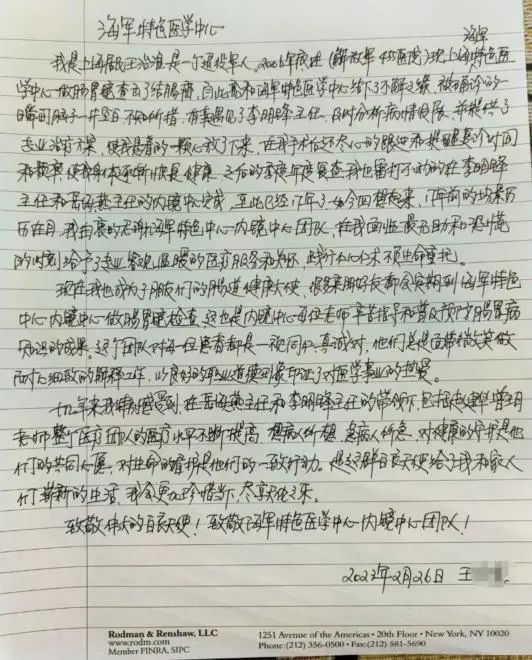 海军特色医学中心
海军
我是上海居民王 是一个退役军人。2006年底在(解放军 医院)现上海特色医
学中心做肠胃镜查出了结肠癌，自此我和海军特色医学中心结下了不解之缘，被确诊的一
瞬间脑子一片空白不知所措，有幸遇见了李明峰主任，及时分析病情发展，并提供了
专业治疗方案，使我悬着的一颗心放了下来，在我手术后还尽心的跟进和提醒复诊时间
和频率，使我身体不断恢复健康，之后的季度年度复查我也雷打不动的在李明峰
主任和岳 主任的内镜中心完成，至此已经17年了，如今回想起来，17年前的场景历
历在目，我由衷的感谢海军特色中心内镜中心团队，在我面临最无助和恐慌
的时刻给予了专业客观温暖的医疗服务和关怀，践行初心不负生命重托。
现在我也成为了朋友们的肠道健康大使，很多亲朋好友都会定期到海军特色
中心内镜中心做肠胃镜检查，这也是内镜中心每位老师辛苦指导和普及预防肠胃病
知识的成果。这个团队对每一位患者都是一视同仁，真诚对待，他们总是面带微笑做
耐心细致的解释工作，以良好的职业道德 印证了对医学事业的热爱。
十几年来我特别感受到，在岳 主任和李明峰主任的带领下，包括赵
老师整个医疗团队的医疗水平不断提高，想病人所想，急病人所急，对健康的守护是他
们的共同心愿，对生命的看护是他们的一致行动。是这群白衣天使给了我和家人
们崭新的生活，我会更加珍惜当下，尽享无忧之乐。
致敬伟大的白衣天使！致敬海军特色医学中心内镜中心团队！
2023年2月26日 王
Rodman & Renshaw, LLC
www.rodm.com
Member FINRA, SIPC
1251 Avenue of the Americas • 20th Floor • New York, NY 10020
Phone:(212) 356-0500 • Fax:(212) 581-5690